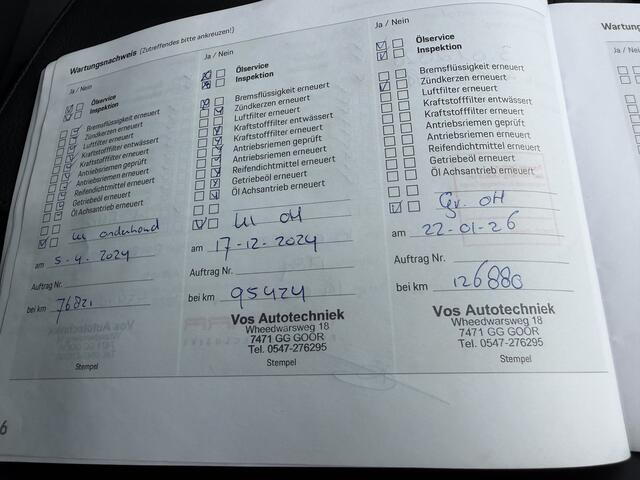 Wartungsnachweis (Zutreffendes bitte ankreuzen!)
Ja / Nein
Ölservice
Inspektion
Bremsflüssigkeit erneuert
Zündkerzen erneuert
Luftfilter erneuert
Kraftstofffilter entwässert
Kraftstofffilter erneuert
Antriebsriemen geprüft
Antriebsriemen erneuert
Reifendichtmittel erneuert
Getriebeöl erneuert
Öl Achsantrieb erneuert
onderhoud
am 5-4-2024
Auftrag Nr.
bei km 76821
Vos Autotechniek
Stempel
Ja / Nein
Ölservice
Inspektion
Bremsflüssigkeit erneuert
Zündkerzen erneuert
Luftfilter erneuert
Kraftstofffilter entwässert
Kraftstofffilter erneuert
Antriebsriemen geprüft
Antriebsriemen erneuert
Reifendichtmittel erneuert
Getriebeöl erneuert
Öl Achsantrieb erneuert
OH
am 17-12-2024
Auftrag Nr.
bei km 95424
Vos Autotechniek
Wheedwarsweg 18
7471 GG GOOR
Tel. 0547-276295
Stempel
Ja / Nein
Ölservice
Inspektion
Bremsflüssigkeit erneuert
Zündkerzen erneuert
Luftfilter erneuert
Kraftstofffilter entwässert
Kraftstofffilter erneuert
Antriebsriemen geprüft
Antriebsriemen erneuert
Reifendichtmittel erneuert
Getriebeöl erneuert
Öl Achsantrieb erneuert
Gr. OH
am 22-01-26
Auftrag Nr.
bei km 126880
Vos Autotechniek
Wheedwarsweg 18
7471 GG GOOR
Tel. 0547-276295
Stempel
6
Ja / N